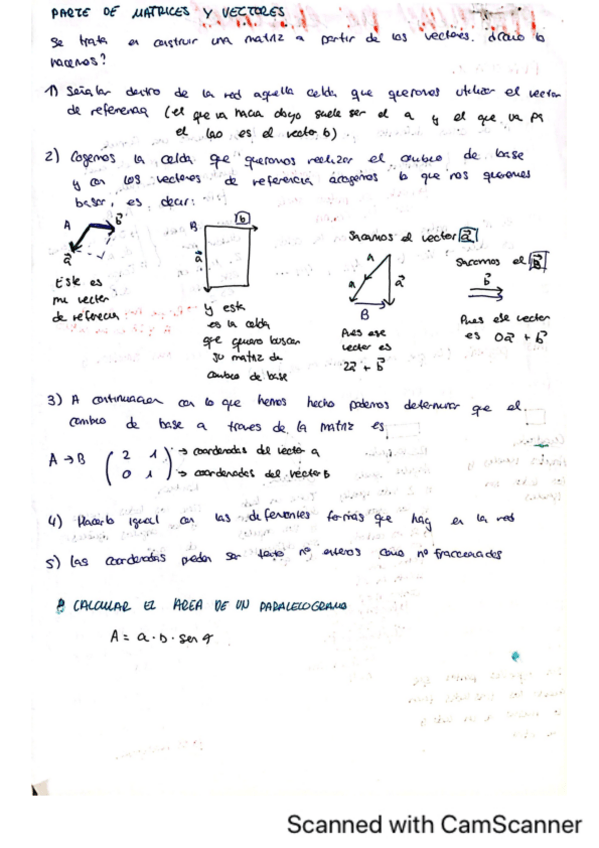 PARTE DE MATRICES Y VECTORES
Se trata en construir una matriz a partir de los vectores. ¿Cómo lo
hacemos?
1) Señalar dentro de la red aquella celda que queremos utilizar el vector
de referencia (el que va hacia abajo suele ser el a y el que va pa
el lao es el vector b).
2) Cogemos la celda que queremos realizar el cambio de base
y con los vectores de referencia lo que nos quieren
basar, es decir:
A b a
Este es
mi vector
de referencia
B b a
Y esta
es la celda
que quiero buscar
su matriz de
cambio de base
Sacamos el vector a
A a a B
Pues ese
vector es
2a + b
Sacamos el b
b
Pues ese vector
es 0a + b
3) A continuación con lo que hemos hecho podemos determinar que el
cambio de base a traves de la matriz es
A → B ( 2 1 ) → coordenadas del vector a
( 0 1 ) → coordenadas del vector b
4) Hacerlo igual con las diferentes formas que hay en la red
5) Las coordenadas pueden ser tanto nº enteros como nº fraccionados
CALCULAR EL AREA DE UN PARALELOGRAMO
A = a · b · sen φ
Scanned with CamScanner